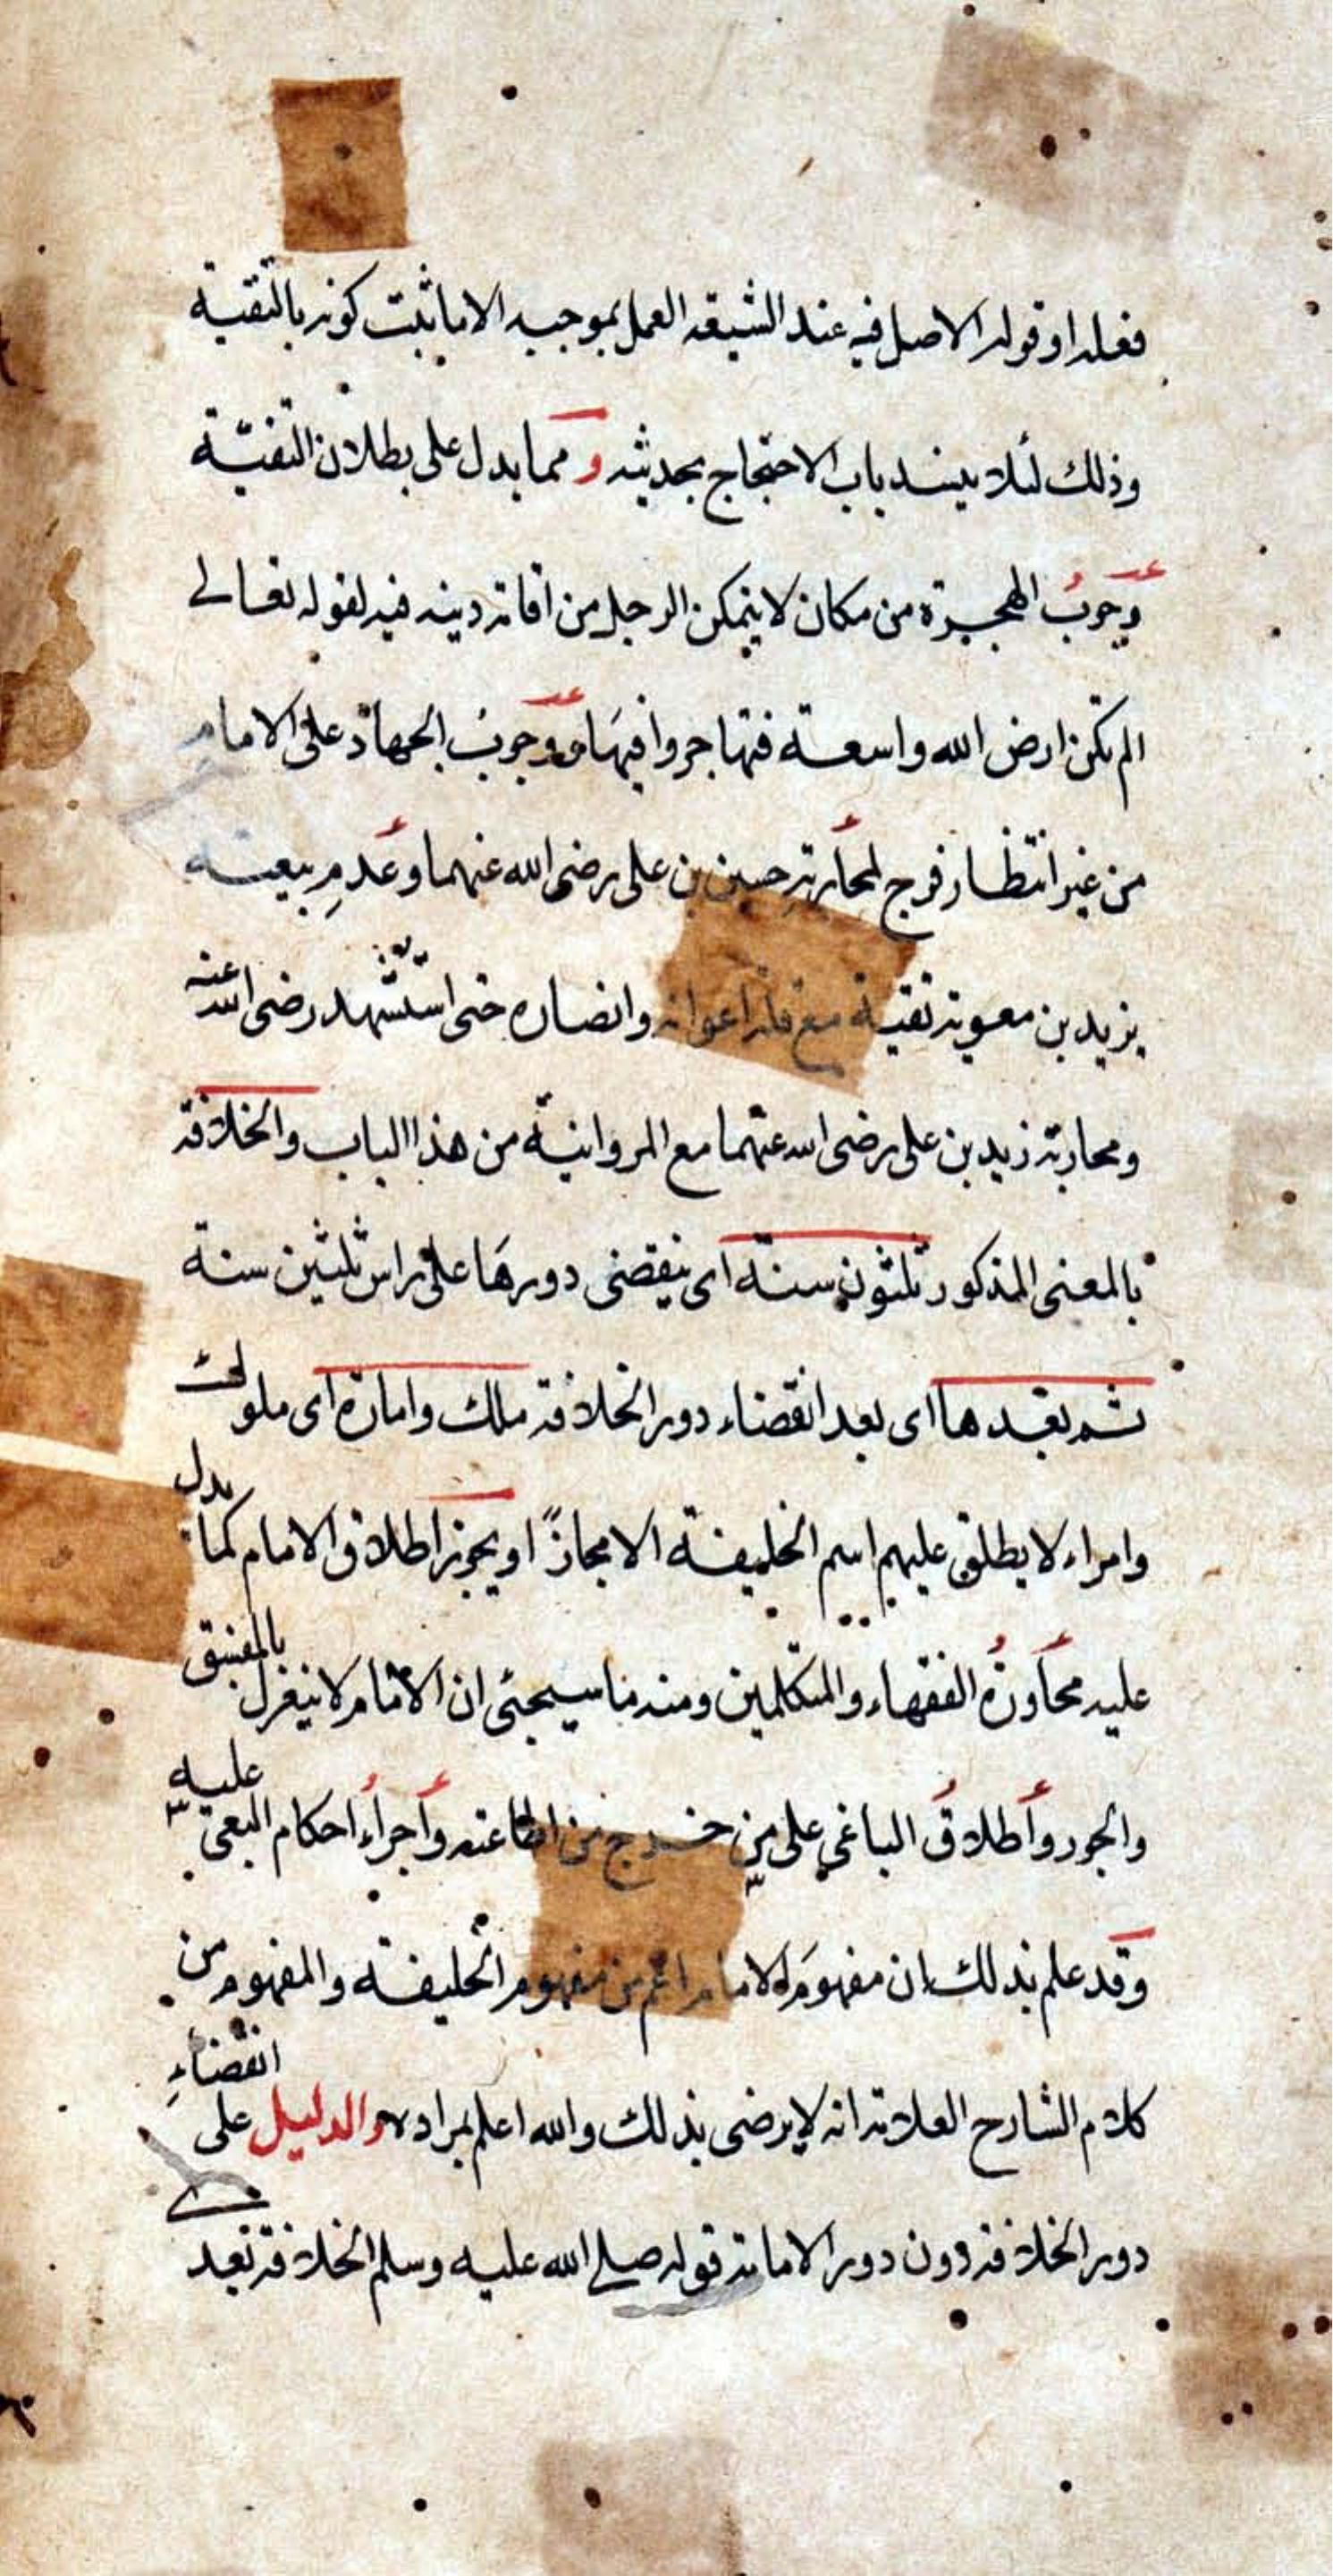 فعله او قوله الاصل فيه عند الشيعة العمل بموجبه الا ما ثبت كونه بالتقية
وذلك لئلا ينسد باب الاحتجاج بحديثه و مما يدل على بطلان التقية
وجوبُ الهجرة من مكان لا يتمكن الرجل من اقامة دينه فيه لقوله تعالى
الم تكن ارض الله واسعة فتهاجروا فيها ووجوبُ الجهاد على الامام
من غير انتظار فرج لمحاربة حسين بن على رضى الله عنهما وعدمِ بيعته
يزيد بن معوية تقية مع قلة اعوانه وانصاره حتى استشهد رضى الله عنه
ومحاربة زيد بن على رضى الله عنهما مع المروانية من هذا الباب والخلافة
بالمعنى المذكور ثلثون سنة اى ينقضى دورها على راس ثلثين سنة
ثم بعدها اى بعد انقضاء دور الخلافة ملك وامارة اى ملوك
وامراء لا يطلق عليهم اسم الخليفة الا مجازًا او يجوز اطلاق الامام كما يدل
عليه محاورة الفقهاء والمتكلمين ومنه ما سيجئ ان الامام لا ينعزل بالفسق
والجور واطلاق الباغى على من خرج من اطاعته واجراء احكام البغى عليه
وقد علم بذلك ان مفهوم الامام اعم من مفهوم الخليفة والمفهوم من
كلام الشارح العلامة انه لا يرضى بذلك والله اعلم بمراده والدليل على انقضاءِ
دور الخلافة دون دور الامامة قوله صلى الله عليه وسلم الخلافة بعدى